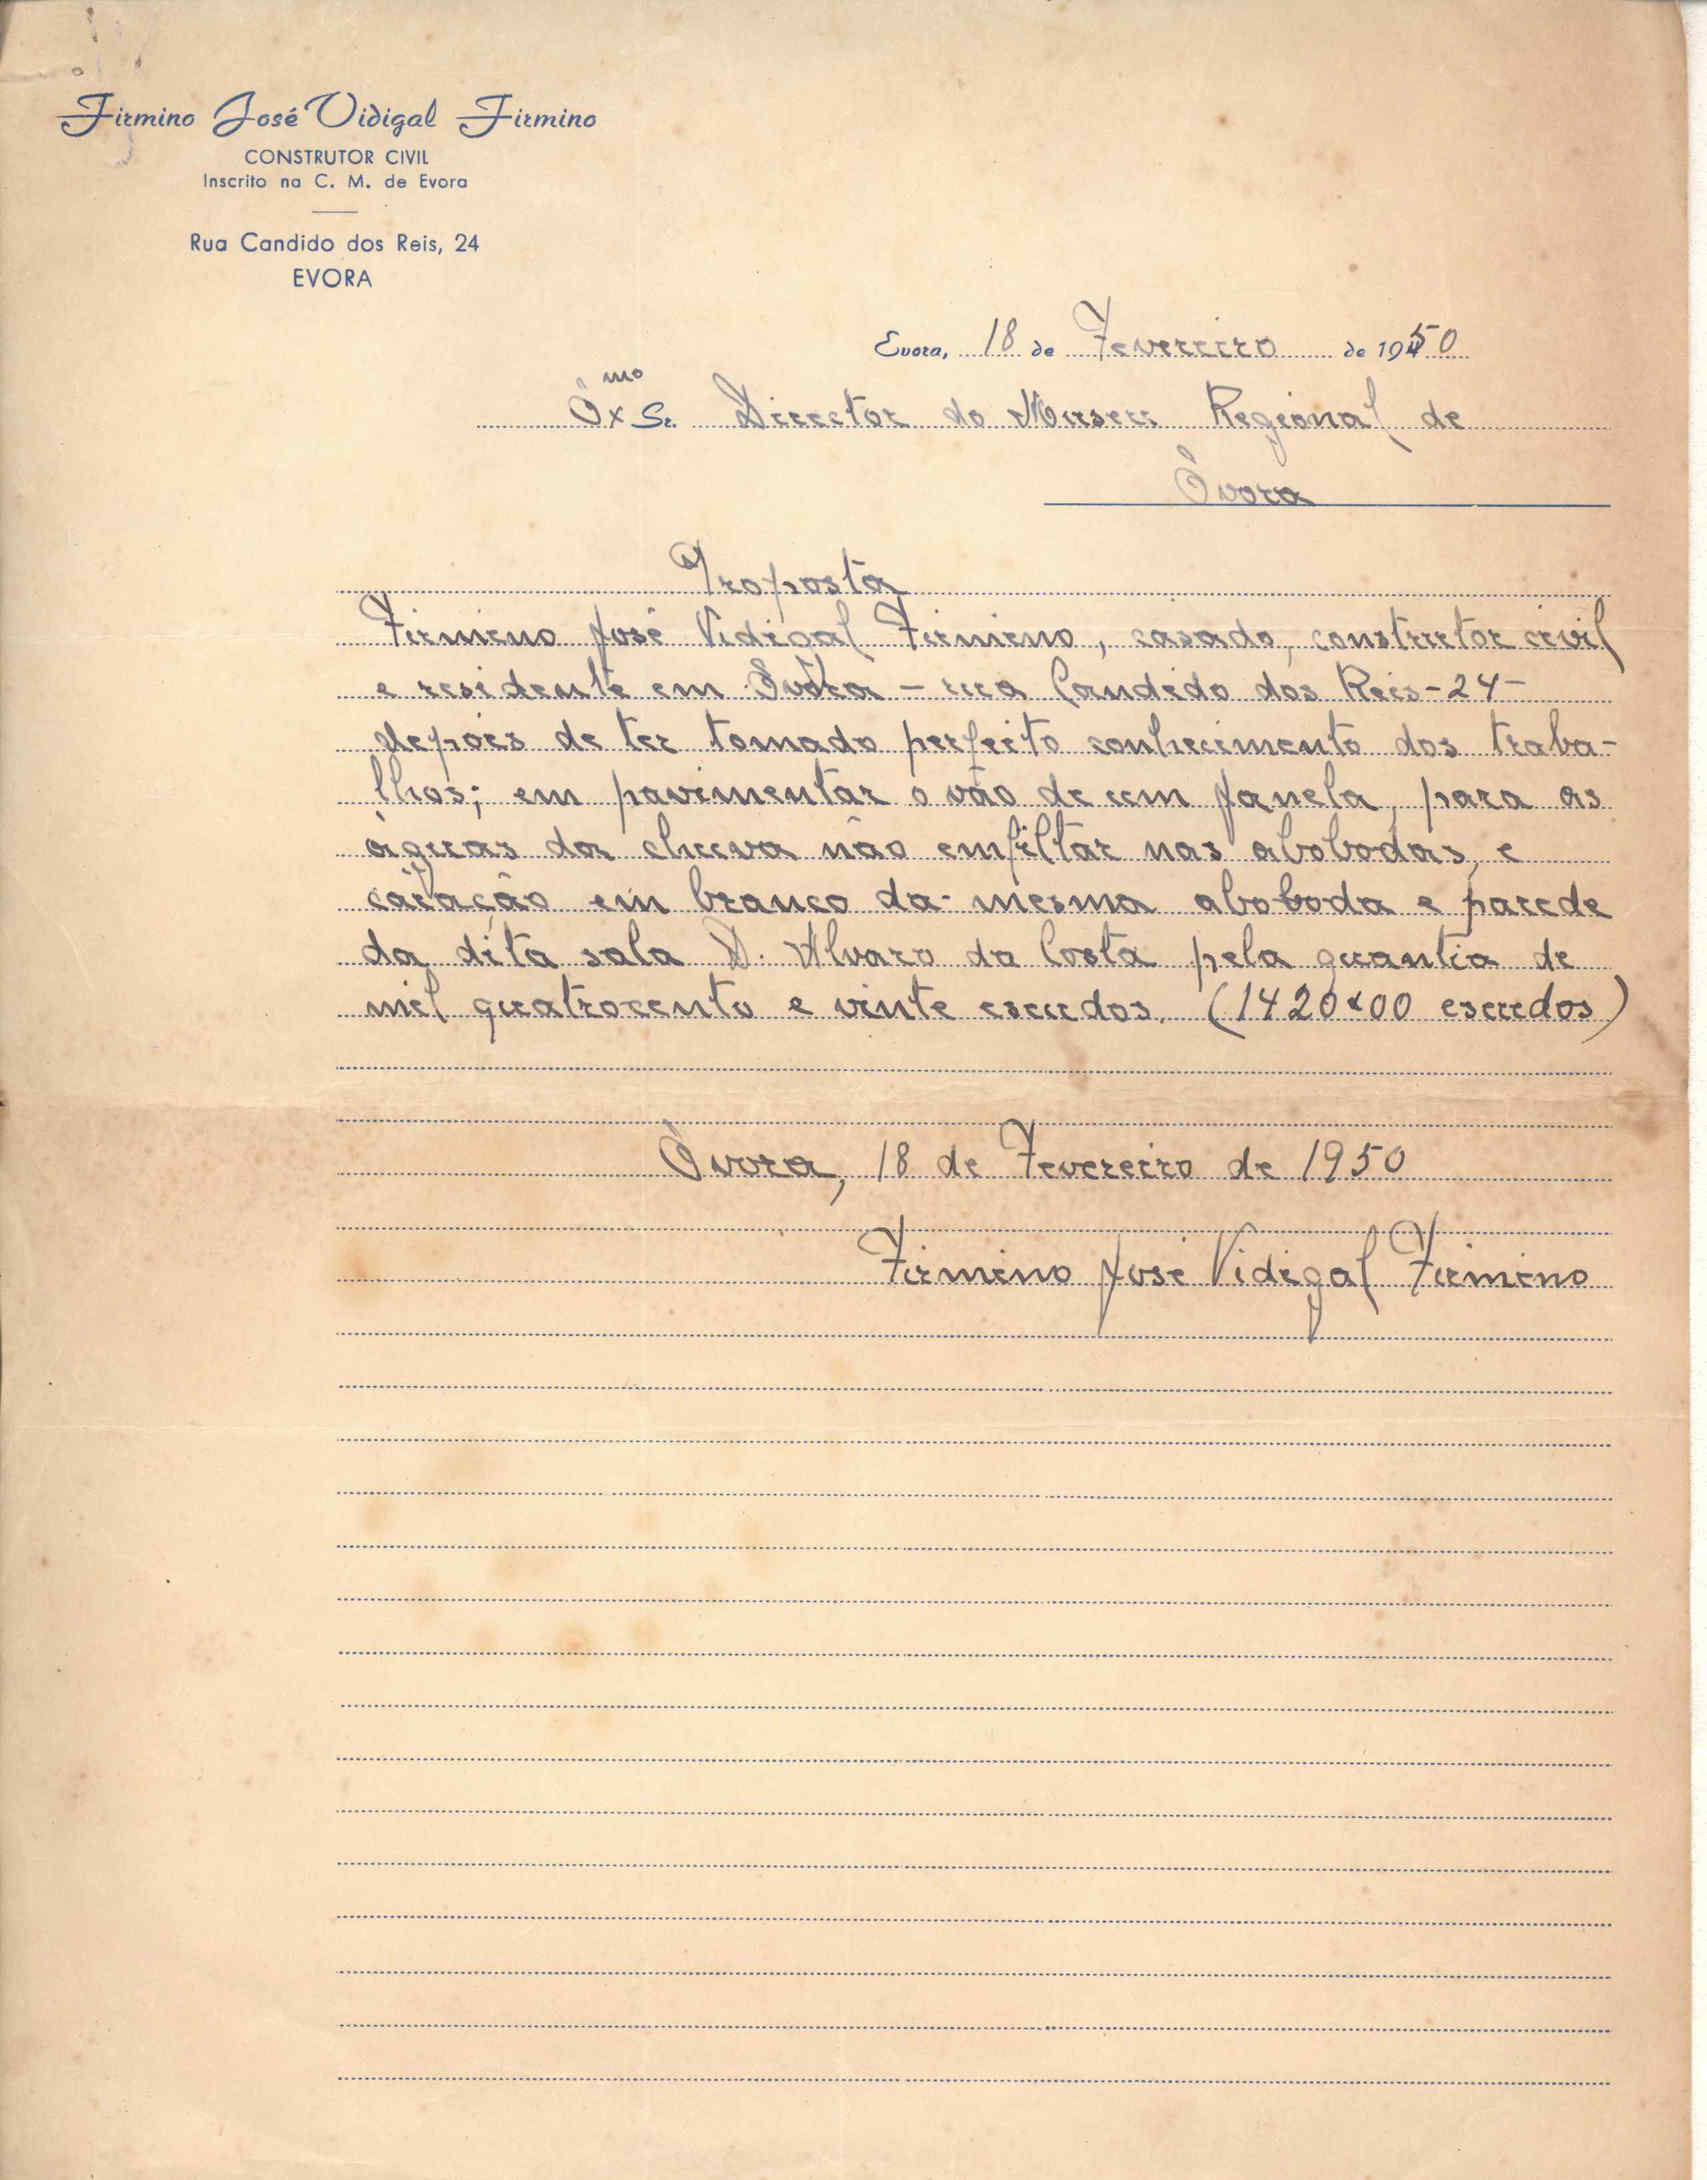 Firmino José Vidigal Firmino
CONSTRUTOR CIVIL
Inscrito na C. M. de Evora
Rua Candido dos Reis, 24
EVORA
Evora, 18 de Fevereiro de 1950
Exmo Sr. Director do Museu Regional de
Évora
Proposta
Firmino José Vidigal Firmino, casado, construtor civil
e residente em Évora – rua Candido dos Reis – 24 –
depois de ter tomado perfeito conhecimento dos traba-
lhos; em pavimentar o vão de um janela, para as
águas da chuva não emfiltar nas abobodas, e
caiação em branco da mesma aboboda e parede
da dita sala D. Alvaro da Costa pela quantia de
mil quatrocento e vinte escudos. (1420$00 escudos)
Évora, 18 de Fevereiro de 1950
Firmino José Vidigal Firmino